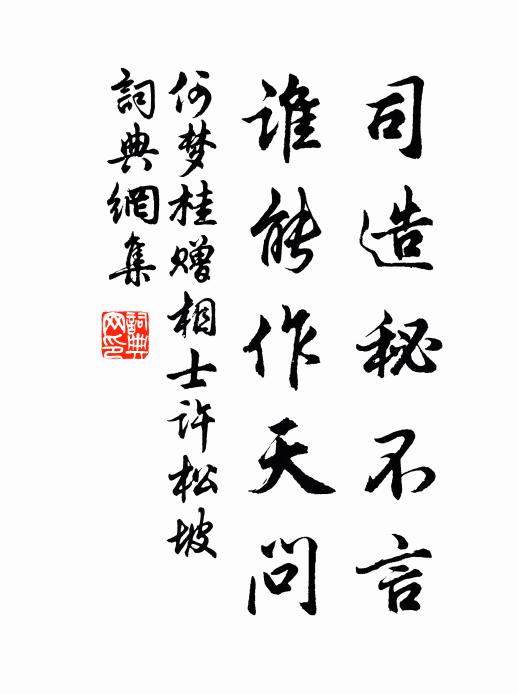 司造秘不言
谁能作天问
何梦桂赠相士许松坡
詞典網集
詞典网印